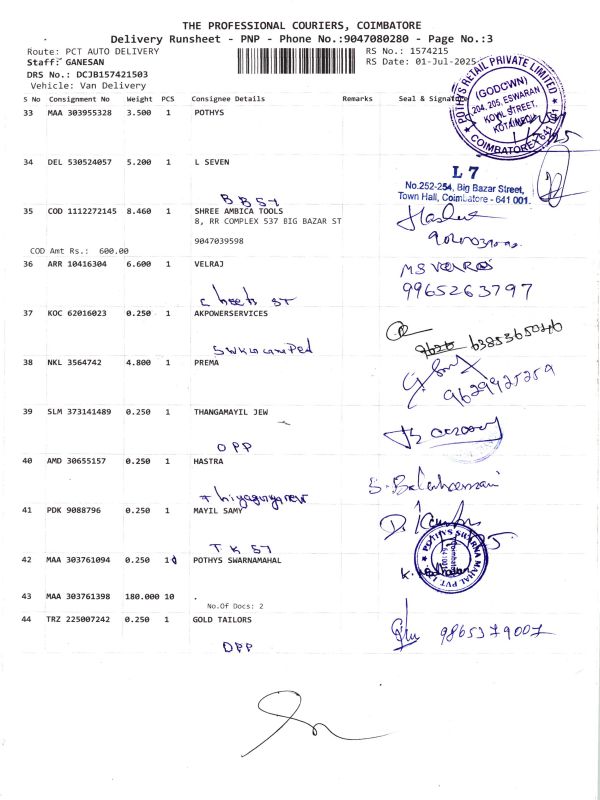 THE PROFESSIONAL COURIERS, COIMBATORE
Delivery Runsheet - PNP - Phone No.:9047080280 - Page No.:3
Route: PCT AUTO DELIVERY
RS No.: 1574215
Staff: GANESAN
RS Date: 01-Jul-2025
DRS No.: DCJB157421503
Vehicle: Van Delivery
S No Consignment No Weight PCS Consignee Details Remarks Seal & Signature
33 MAA 303955328 3.500 1 POTHYS
POTHYS RETAIL PRIVATE LIMITED
(GODOWN)
204, 205, ESWARAN
KOVIL STREET,
COIMBATORE-641 001
34 DEL 530524057 5.200 1 L SEVEN
L 7
No.252-254, Big Bazar Street,
Town Hall, Coimbatore - 641 001.
BB ST
35 COD 1112272145 8.460 1 SHREE AMBICA TOOLS
8, RR COMPLEX 537 BIG BAZAR ST
9047039598
COD Amt Rs.: 600.00
36 ARR 10416304 6.600 1 VELRAJ
9965263797
ST
37 KOC 62016023 0.250 1 AKPOWERSERVICES
38 NKL 3564742 4.800 1 PREMA
9629925259
39 SLM 373141489 0.250 1 THANGAMAYIL JEW
OPP
40 AMD 30655157 0.250 1 HASTRA
41 PDK 9088796 0.250 1 MAYIL SAMY
TK ST
42 MAA 303761094 0.250 1 POTHYS SWARNAMAHAL
POTHYS SWARNA MAHAL PVT L
43 MAA 303761398 180.000 10 .
No.Of Docs: 2
44 TRZ 225007242 0.250 1 GOLD TAILORS
9865379007
OPP